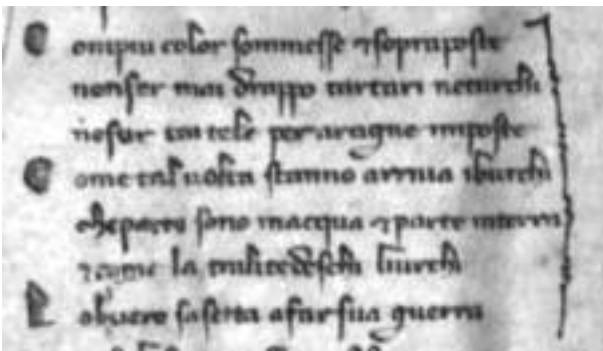 Compiu color sommesse ⁊ sopraposte
nonfer mai drappo tartari neturchi
nefur tai tele per aragne imposte
Come taluolta stanno arriua iburchi
cheparte sono inacqua ⁊ parte interra
⁊ come la tralitedeschi liurchi
Lobiuero sasetta afar sua guerra